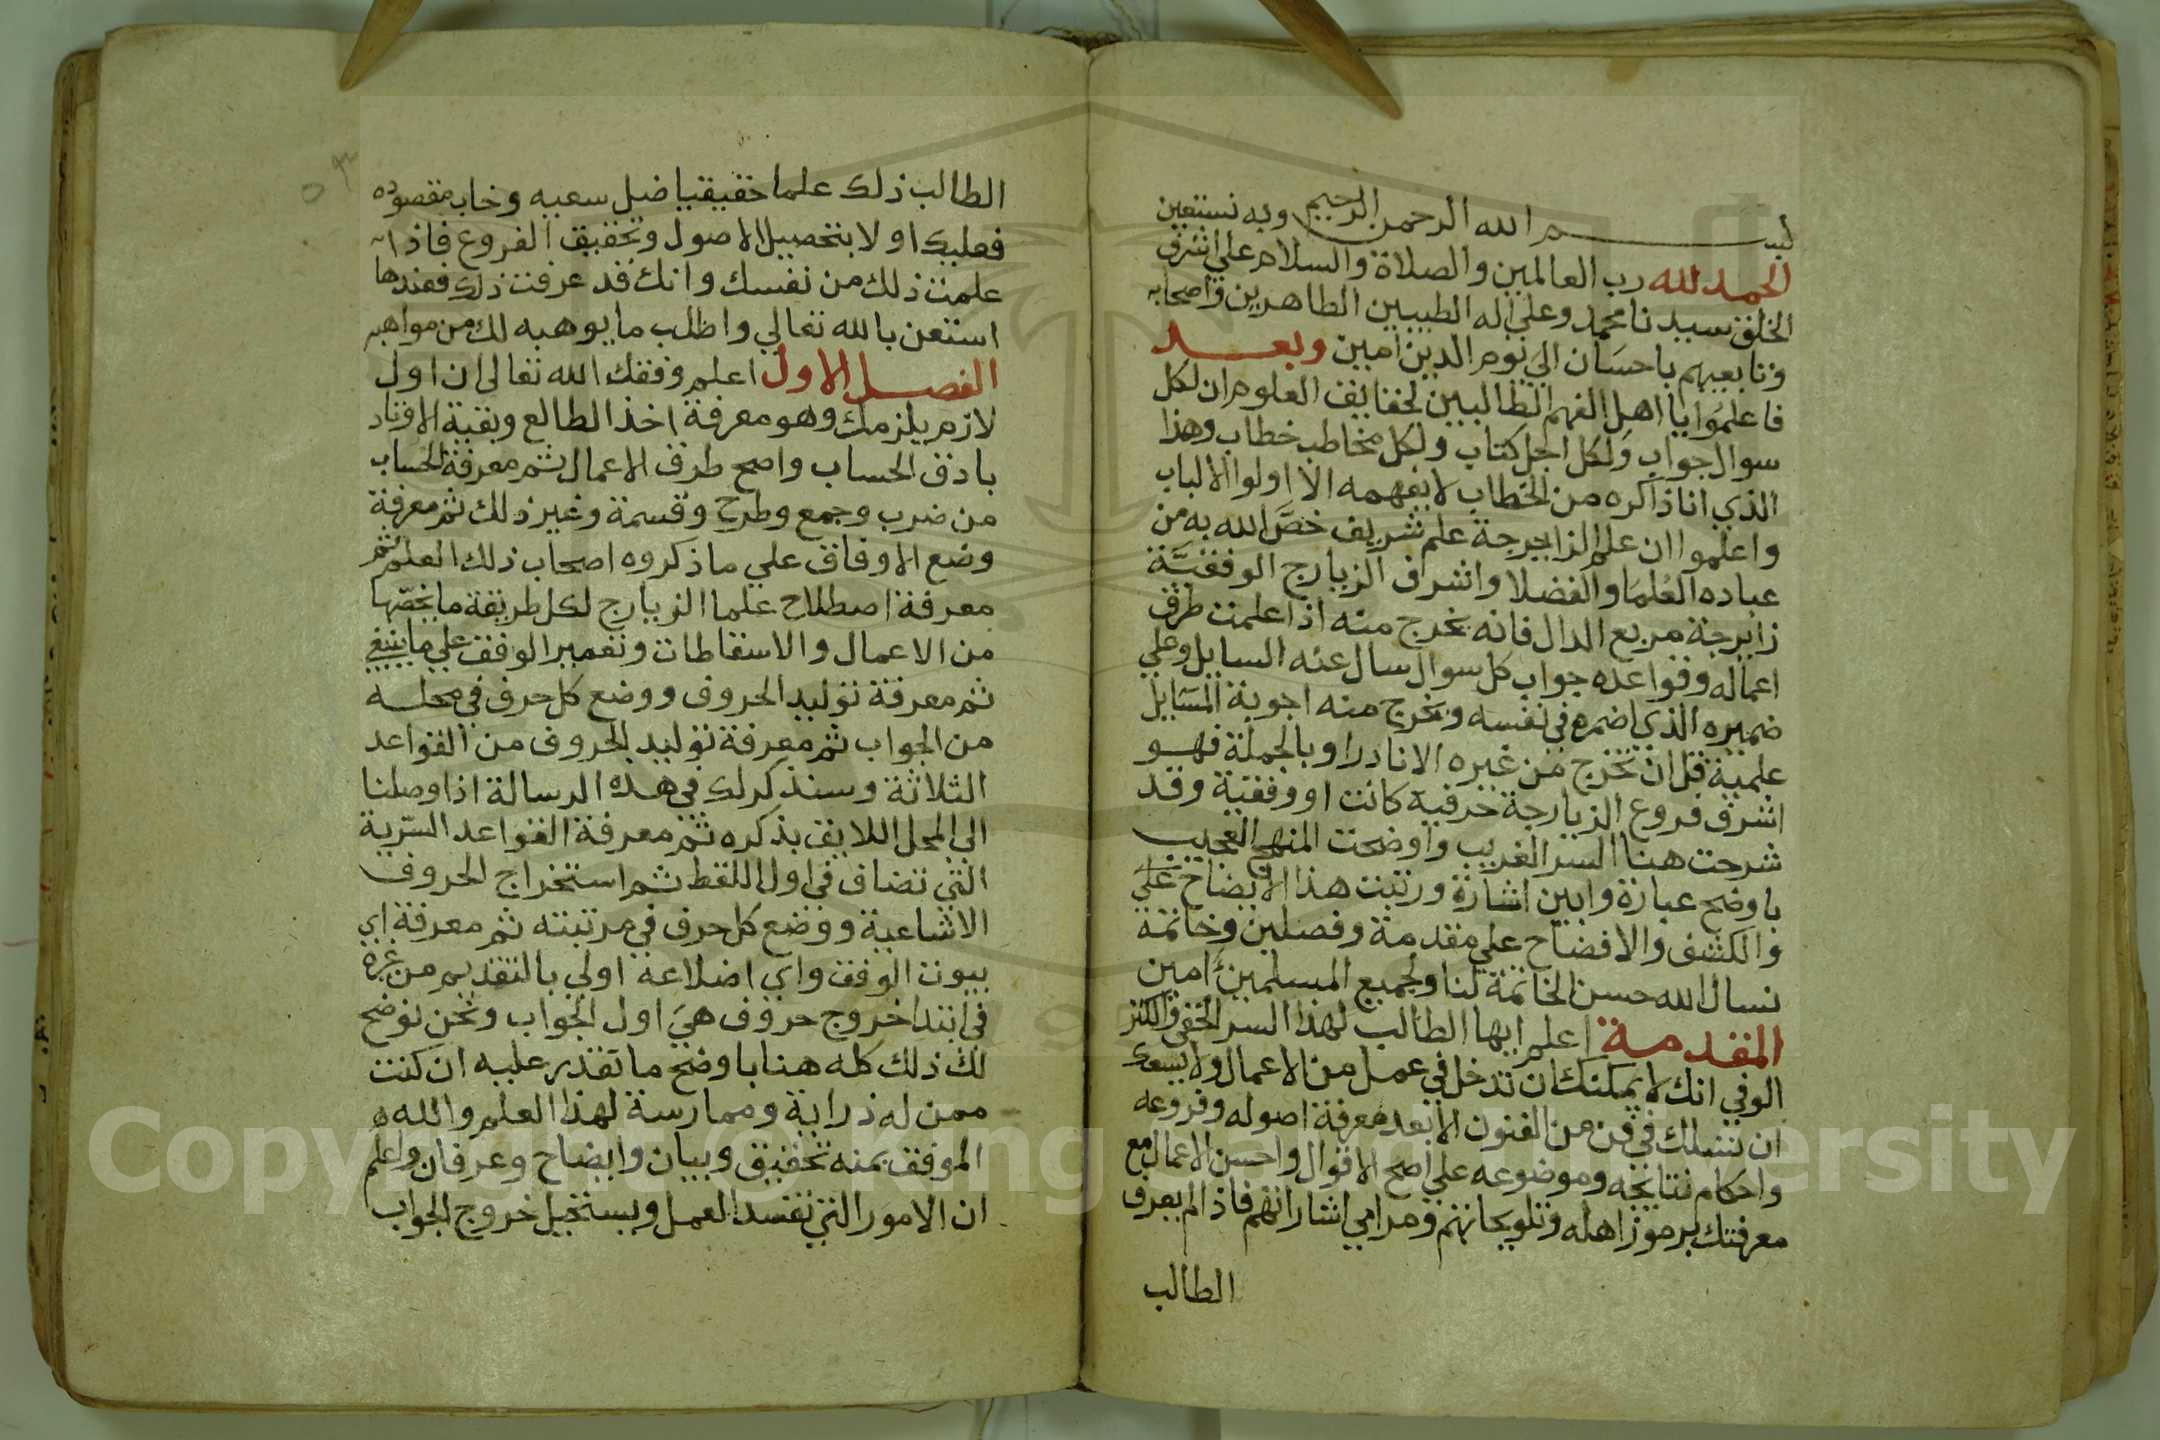 بسم الله الرحمن الرحيم وبه نستعين
الحمد لله رب العالمين والصلاة والسلام علي اشرف
الخلق سيدنا محمد وعلي اله الطيبين الطاهرين واصحابه
وتابعيهم باحسان الي يوم الدين امين وبعد
فاعلموا يا اهل الفهم الطالبين لحقايق العلوم ان لكل
سوال جواب ولكل اجل كتاب ولكل مخاطب خطاب وهذا
الذي انا ذاكره من الخطاب لا يفهمه الا اولوا الالباب
واعلموا ان علم الزايرجة علم شريف خصَّ الله به من
عباده العلما والفضلا واشرف الزيارج الوفقيَّة
زايرجة مربع الدال فانه يخرج منه اذا علمت طرق
اعماله وقواعده جواب كل سوال سال عنه السايل وعلي
ضميره الذي اضمره في نفسه ويخرج منه اجوبة المسايل
علمية قل ان تخرج من غيره الا نادرا وبالجملة فهو
اشرف فروع الزيارجة حرفية كانت او وفقية وقد
شرحت هنا السر الغريب واوضحت المنهج العجيب
باوضح عبارة وابين اشارة ورتبت هذا الايضاح علي
والكشف والافضاح علي مقدمة وفصلين وخاتمة
نسال الله حسن الخاتمة لنا ولجميع المسلمين امين
المقدمة اعلم ايها الطالب لهذا السر الخفي والكنز
الوفي انك لا يمكنك ان تدخل في عمل من الاعمال ولا يسعك
ان تسلك في فن من الفنون الا بعد معرفة اصوله وفروعه
واحكام نتائجه وموضوعه علي اصح الاقوال واحسن الاعمال مع
معرفتك برموز اهله وتلويحاتهم ومرامي اشاراتهم فاذا لم يعرف
الطالب
الطالب ذلك علما حقيقيا ضل سعيه وخاب مقصوده
فعليك اولا بتحصيل الاصول وتحقيق الفروع فاذا
علمت ذلك من نفسك وانك قد عرفت ذلك فعندها
استعن بالله تعالي واطلب ما يوهبه لك من مواهبه
الفصل الاول اعلم وفقك الله تعالى ان اول
لازم يلزمك وهو معرفة اخذ الطالع وبقية الاوتاد
بادق الحساب واصح طرق الاعمال ثم معرفة الحساب
من ضرب وجمع وطرح وقسمة وغير ذلك ثم معرفة
وضع الاوفاق علي ما ذكروه اصحاب ذلك العلم ثم
معرفة اصطلاح علما الزيارج لكل طريقة ما يخصّها
من الاعمال والاسقاطات وتعمير الوفق علي ما ينبغي
ثم معرفة توليد الحروف ووضع كل حرف في محله
من الجواب ثم معرفة توليد الحروف من القواعد
الثلاثة وسنذكر لك في هذه الرسالة اذا وصلنا
الى المحل اللايق بذكره ثم معرفة القواعد السّرية
التي تضاف في اول اللقط ثم استخراج الحروف
الاشاعية ووضع كل حرف في مرتبته ثم معرفة اي
بيوت الوفق واي اضلاعه اولي بالتقديم من غيره
في ابتدا خروج حروف هي اول الجواب ونحن نوضح
لك ذلك كله هنا باوضح ما تقدر عليه ان كنت
ممن له دراية وممارسة لهذا العلم والله
الموفق بمنه تحقيق وبيان وايضاح وعرفان واعلم
ان الامور التي تفسد العمل ويستحيل خروج الجواب
Copyright © King Saud University